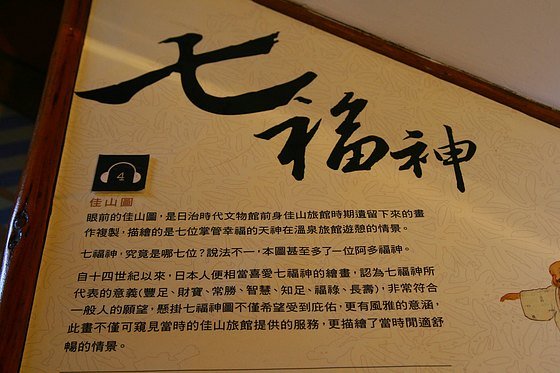 七福神
4
佳山圖
眼前的佳山圖，是日治時代文物館前身佳山旅館時期遺留下來的畫
作複製，描繪的是七位掌管幸福的天神在溫泉旅館遊憩的情景。
七福神，究竟是哪七位？說法不一，本圖甚至多了一位阿多福神。
自十四世紀以來，日本人便相當喜愛七福神的繪畫，認為七福神所
代表的意義（豐足、財寶、常勝、智慧、知足、福祿、長壽），非常符合
一般人的願望，懸掛七福神圖不僅希望受到庇佑，更有風雅的意涵，
此畫不僅可窺見當時的佳山旅館提供的服務，更描繪了當時閒適舒
暢的情景。